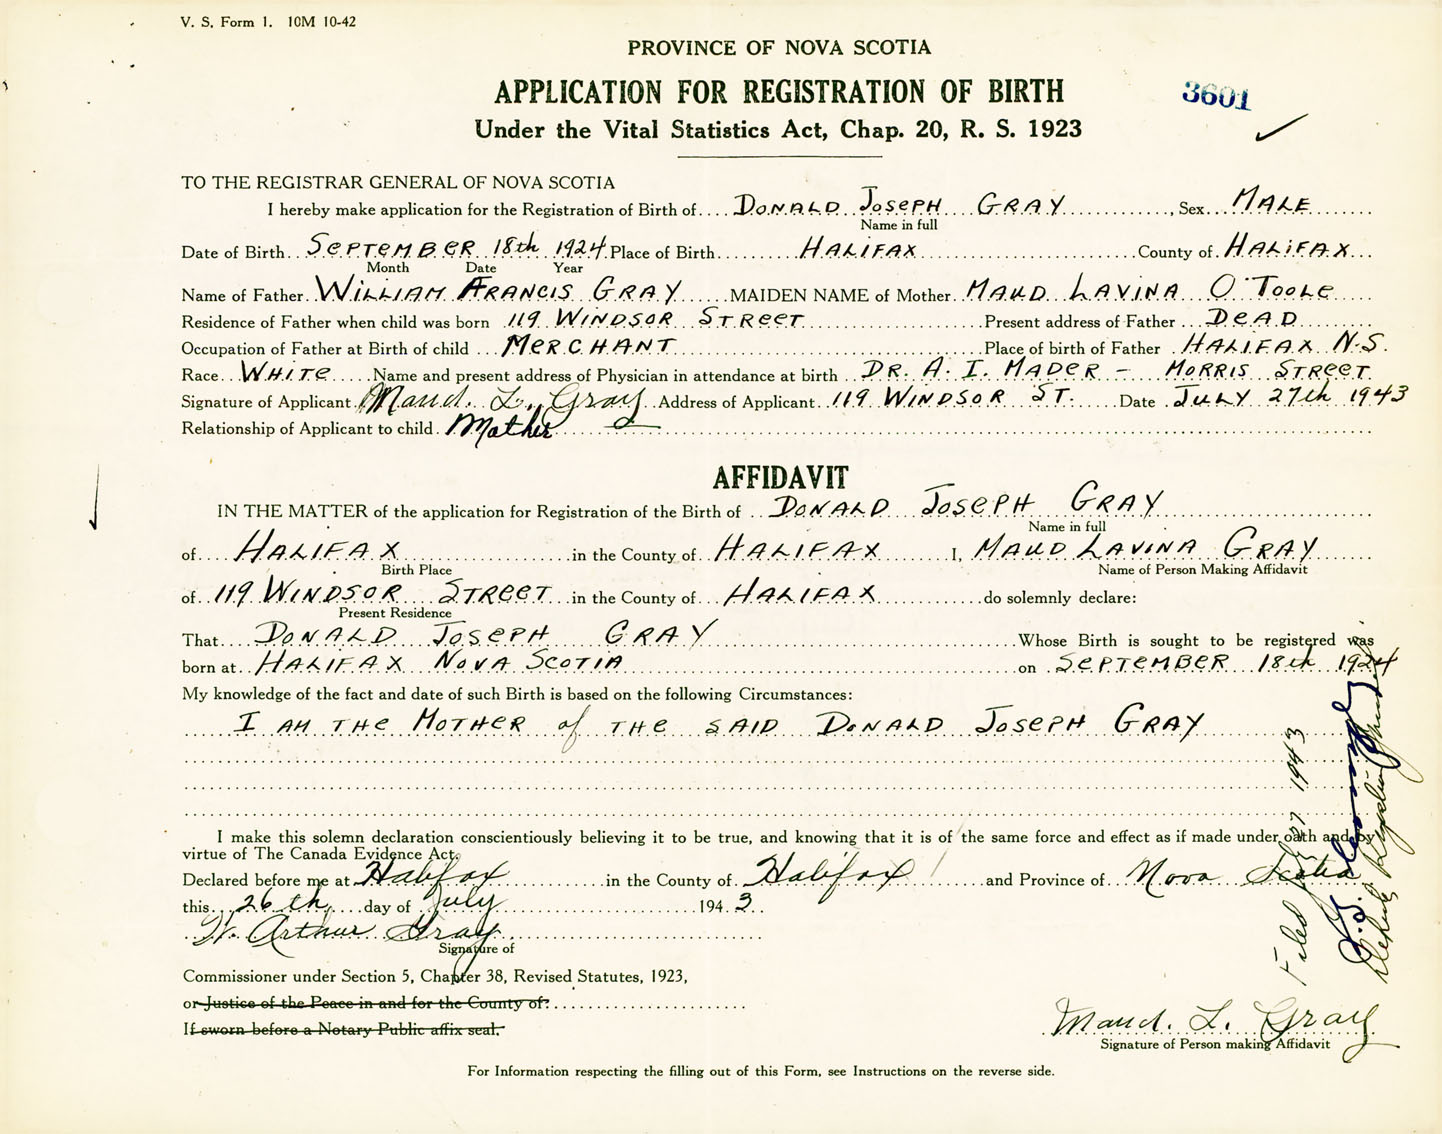 V. S. Form 1. 10M 10-42
PROVINCE OF NOVA SCOTIA
APPLICATION FOR REGISTRATION OF BIRTH
3601
Under the Vital Statistics Act, Chap. 20, R. S. 1923
TO THE REGISTRAR GENERAL OF NOVA SCOTIA
I hereby make application for the Registration of Birth of DONALD JOSEPH GRAY, Sex MALE
Name in full
Date of Birth SEPTEMBER 18th 1924 Place of Birth HALIFAX County of HALIFAX
Month Date Year
Name of Father WILLIAM FRANCIS GRAY MAIDEN NAME of Mother MAUD LAVINA O'TOOLE
Residence of Father when child was born 119 WINDSOR STREET Present address of Father DEAD
Occupation of Father at Birth of child MERCHANT Place of birth of Father HALIFAX N.S.
Race WHITE Name and present address of Physician in attendance at birth DR. A. I. MADER - MORRIS STREET
Signature of Applicant Maud. L. Gray Address of Applicant 119 WINDSOR ST. Date JULY 27th 1943
Relationship of Applicant to child Mother
AFFIDAVIT
IN THE MATTER of the application for Registration of the Birth of DONALD JOSEPH GRAY
Name in full
of HALIFAX in the County of HALIFAX I, MAUD LAVINA GRAY
Birth Place Name of Person Making Affidavit
of 119 WINDSOR STREET in the County of HALIFAX do solemnly declare:
Present Residence
That DONALD JOSEPH GRAY Whose Birth is sought to be registered was
born at HALIFAX NOVA SCOTIA on SEPTEMBER 18th 1924
My knowledge of the fact and date of such Birth is based on the following Circumstances:
I AM THE MOTHER of THE SAID DONALD JOSEPH GRAY
I make this solemn declaration conscientiously believing it to be true, and knowing that it is of the same force and effect as if made under oath and by
virtue of The Canada Evidence Act.
Declared before me at Halifax in the County of Halifax and Province of Nova Scotia
this 26th day of July 1943
W. Arthur Gray
Signature of
Commissioner under Section 5, Chapter 38, Revised Statutes, 1923,
or Justice of the Peace in and for the County of:
If sworn before a Notary Public affix seal.
Maud. L. Gray
Signature of Person making Affidavit
For Information respecting the filling out of this Form, see Instructions on the reverse side.
Filed July 27 1943
Deputy Registrar General